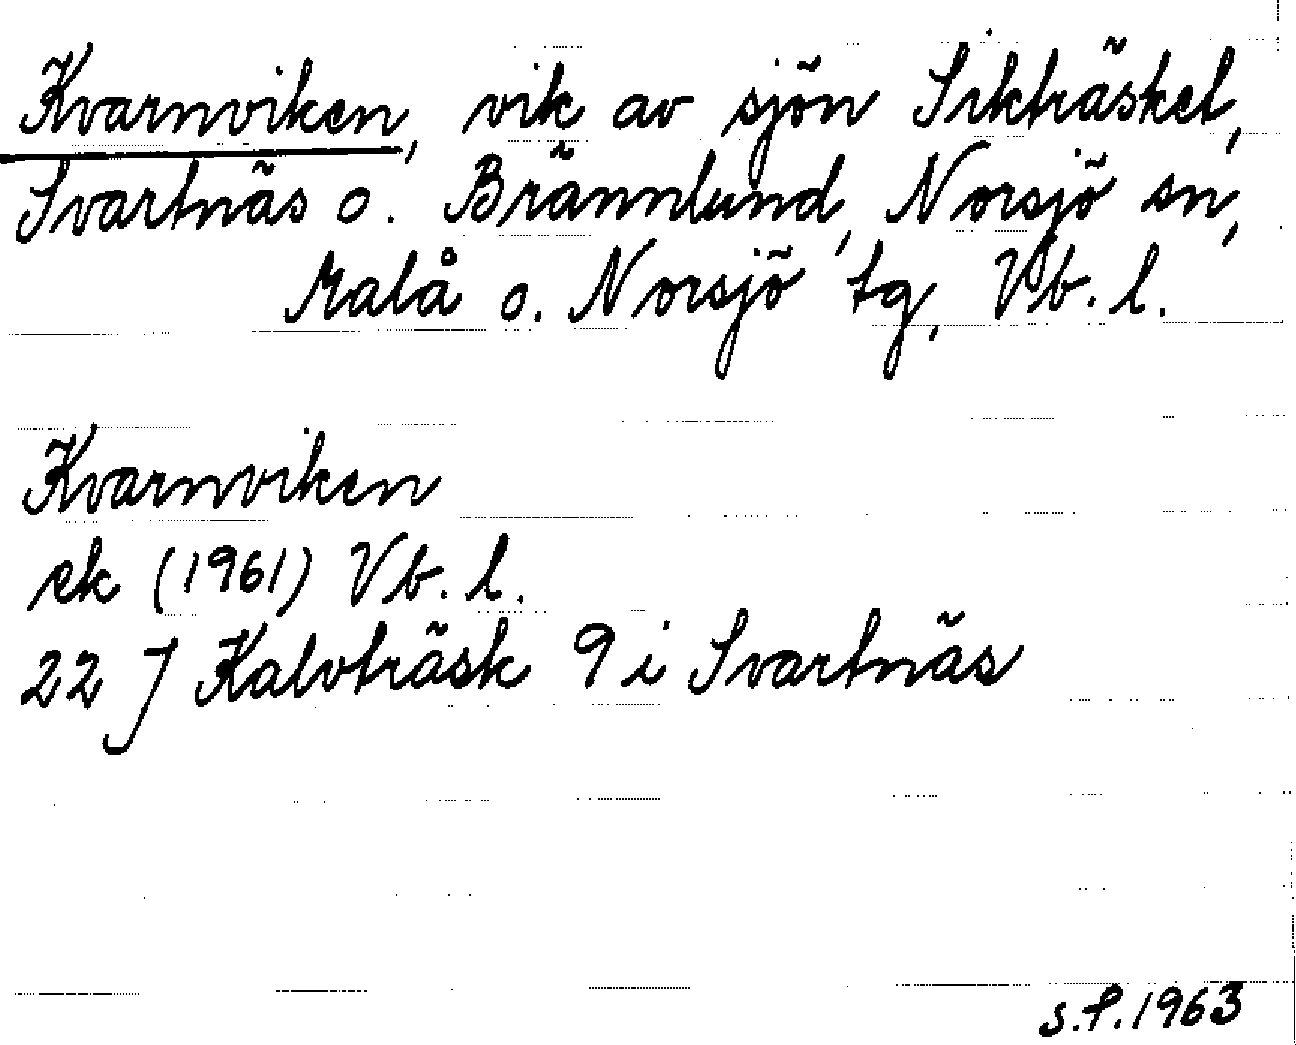 Kvarnviken, vik av sjön Sikträsket,
Svartnäs o. Brännlund, Norsjö sn,
Malå o. Norsjö tg, Vb. l.
Kvarnviken
ek (1961) Vb. l.
22 J Kalvträsk 9 i Svartnäs
s.P. 1963